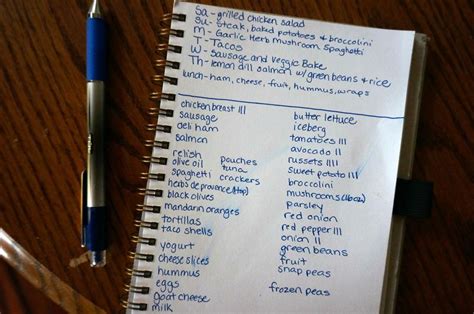 Sa - grilled chicken salad
Su - Steak, baked potatoes & broccolini
M - Garlic Herb Mushroom Spaghetti
T - Tacos
W - Sausage and Veggie Bake
Th - lemon dill salmon w/green beans & rice
lunch - ham, cheese, fruit, hummus, wraps
chicken breast III
sausage
deli ham
salmon
relish
olive oil
spaghetti
herbs de provence
black olives
mandarin oranges
tortillas
taco shells
yogurt
cheese slices
hummus
eggs
goat cheese
milk
pouches
tuna
crackers
butter lettuce
iceberg
tomatoes III
avocado II
russets IIII
sweet potato III
broccolini
mushrooms
parsley
red onion
red pepper III
onion II
green beans
fruit
snap peas
frozen peas